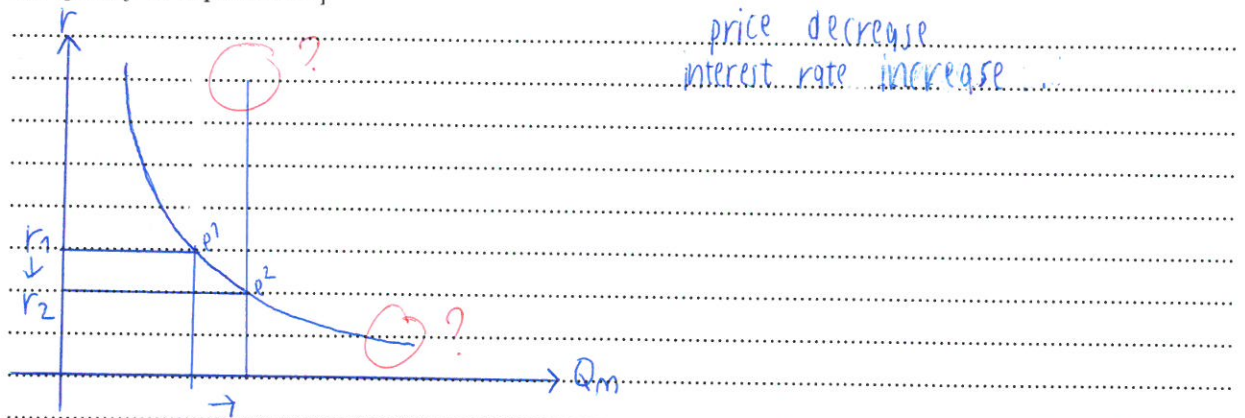 r
?
price decrease
interest rate increase ..
r1
e1
↓
e2
r2
?
Qm
→